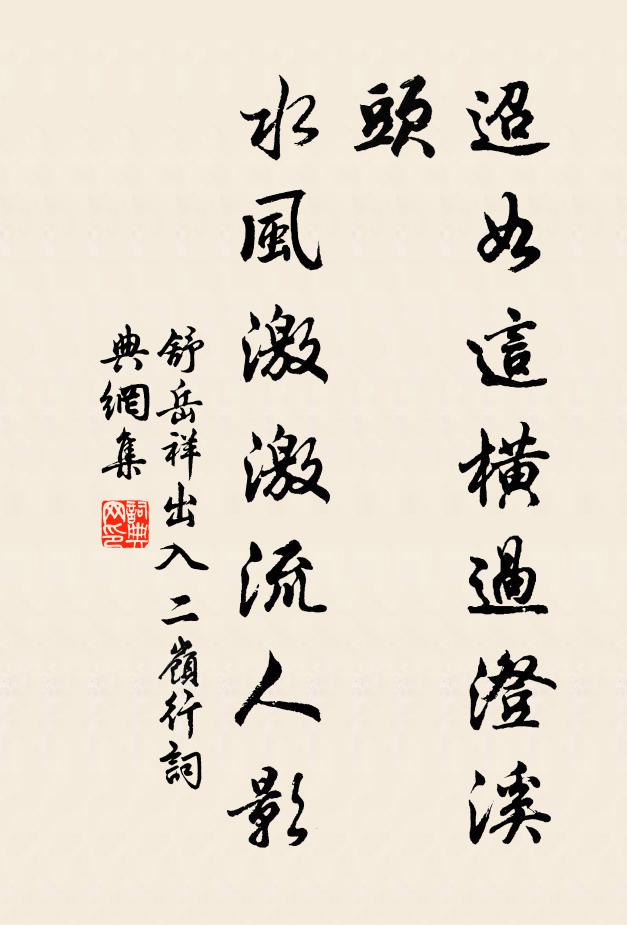 迢如這橫過澄溪
頭
水風激激流人影
舒岳祥出入二嶺行詞
典網集
詞典
网印